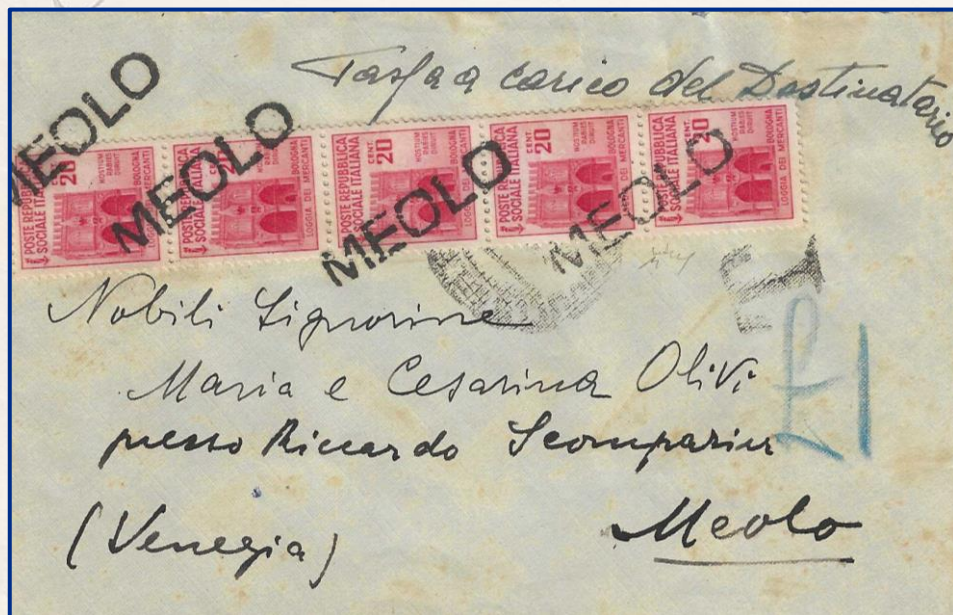 Tassa a carico del Destinatario
MEOLO MEOLO MEOLO MEOLO
POSTE REPUBBLICA SOCIALE ITALIANA CENT. 20 HOSTIUM RABIES DIRUIT BOLOGNA LOGGIA DEI MERCANTI
POSTE REPUBBLICA SOCIALE ITALIANA CENT. 20 HOSTIUM RABIES DIRUIT BOLOGNA LOGGIA DEI MERCANTI
POSTE REPUBBLICA SOCIALE ITALIANA CENT. 20 HOSTIUM RABIES DIRUIT BOLOGNA LOGGIA DEI MERCANTI
POSTE REPUBBLICA SOCIALE ITALIANA CENT. 20 HOSTIUM RABIES DIRUIT BOLOGNA LOGGIA DEI MERCANTI
POSTE REPUBBLICA SOCIALE ITALIANA CENT. 20 HOSTIUM RABIES DIRUIT BOLOGNA LOGGIA DEI MERCANTI
T
Nobili Signorine
Maria e Cesarina Olivi
presso Riccardo Scomparin
(Venezia) Meolo